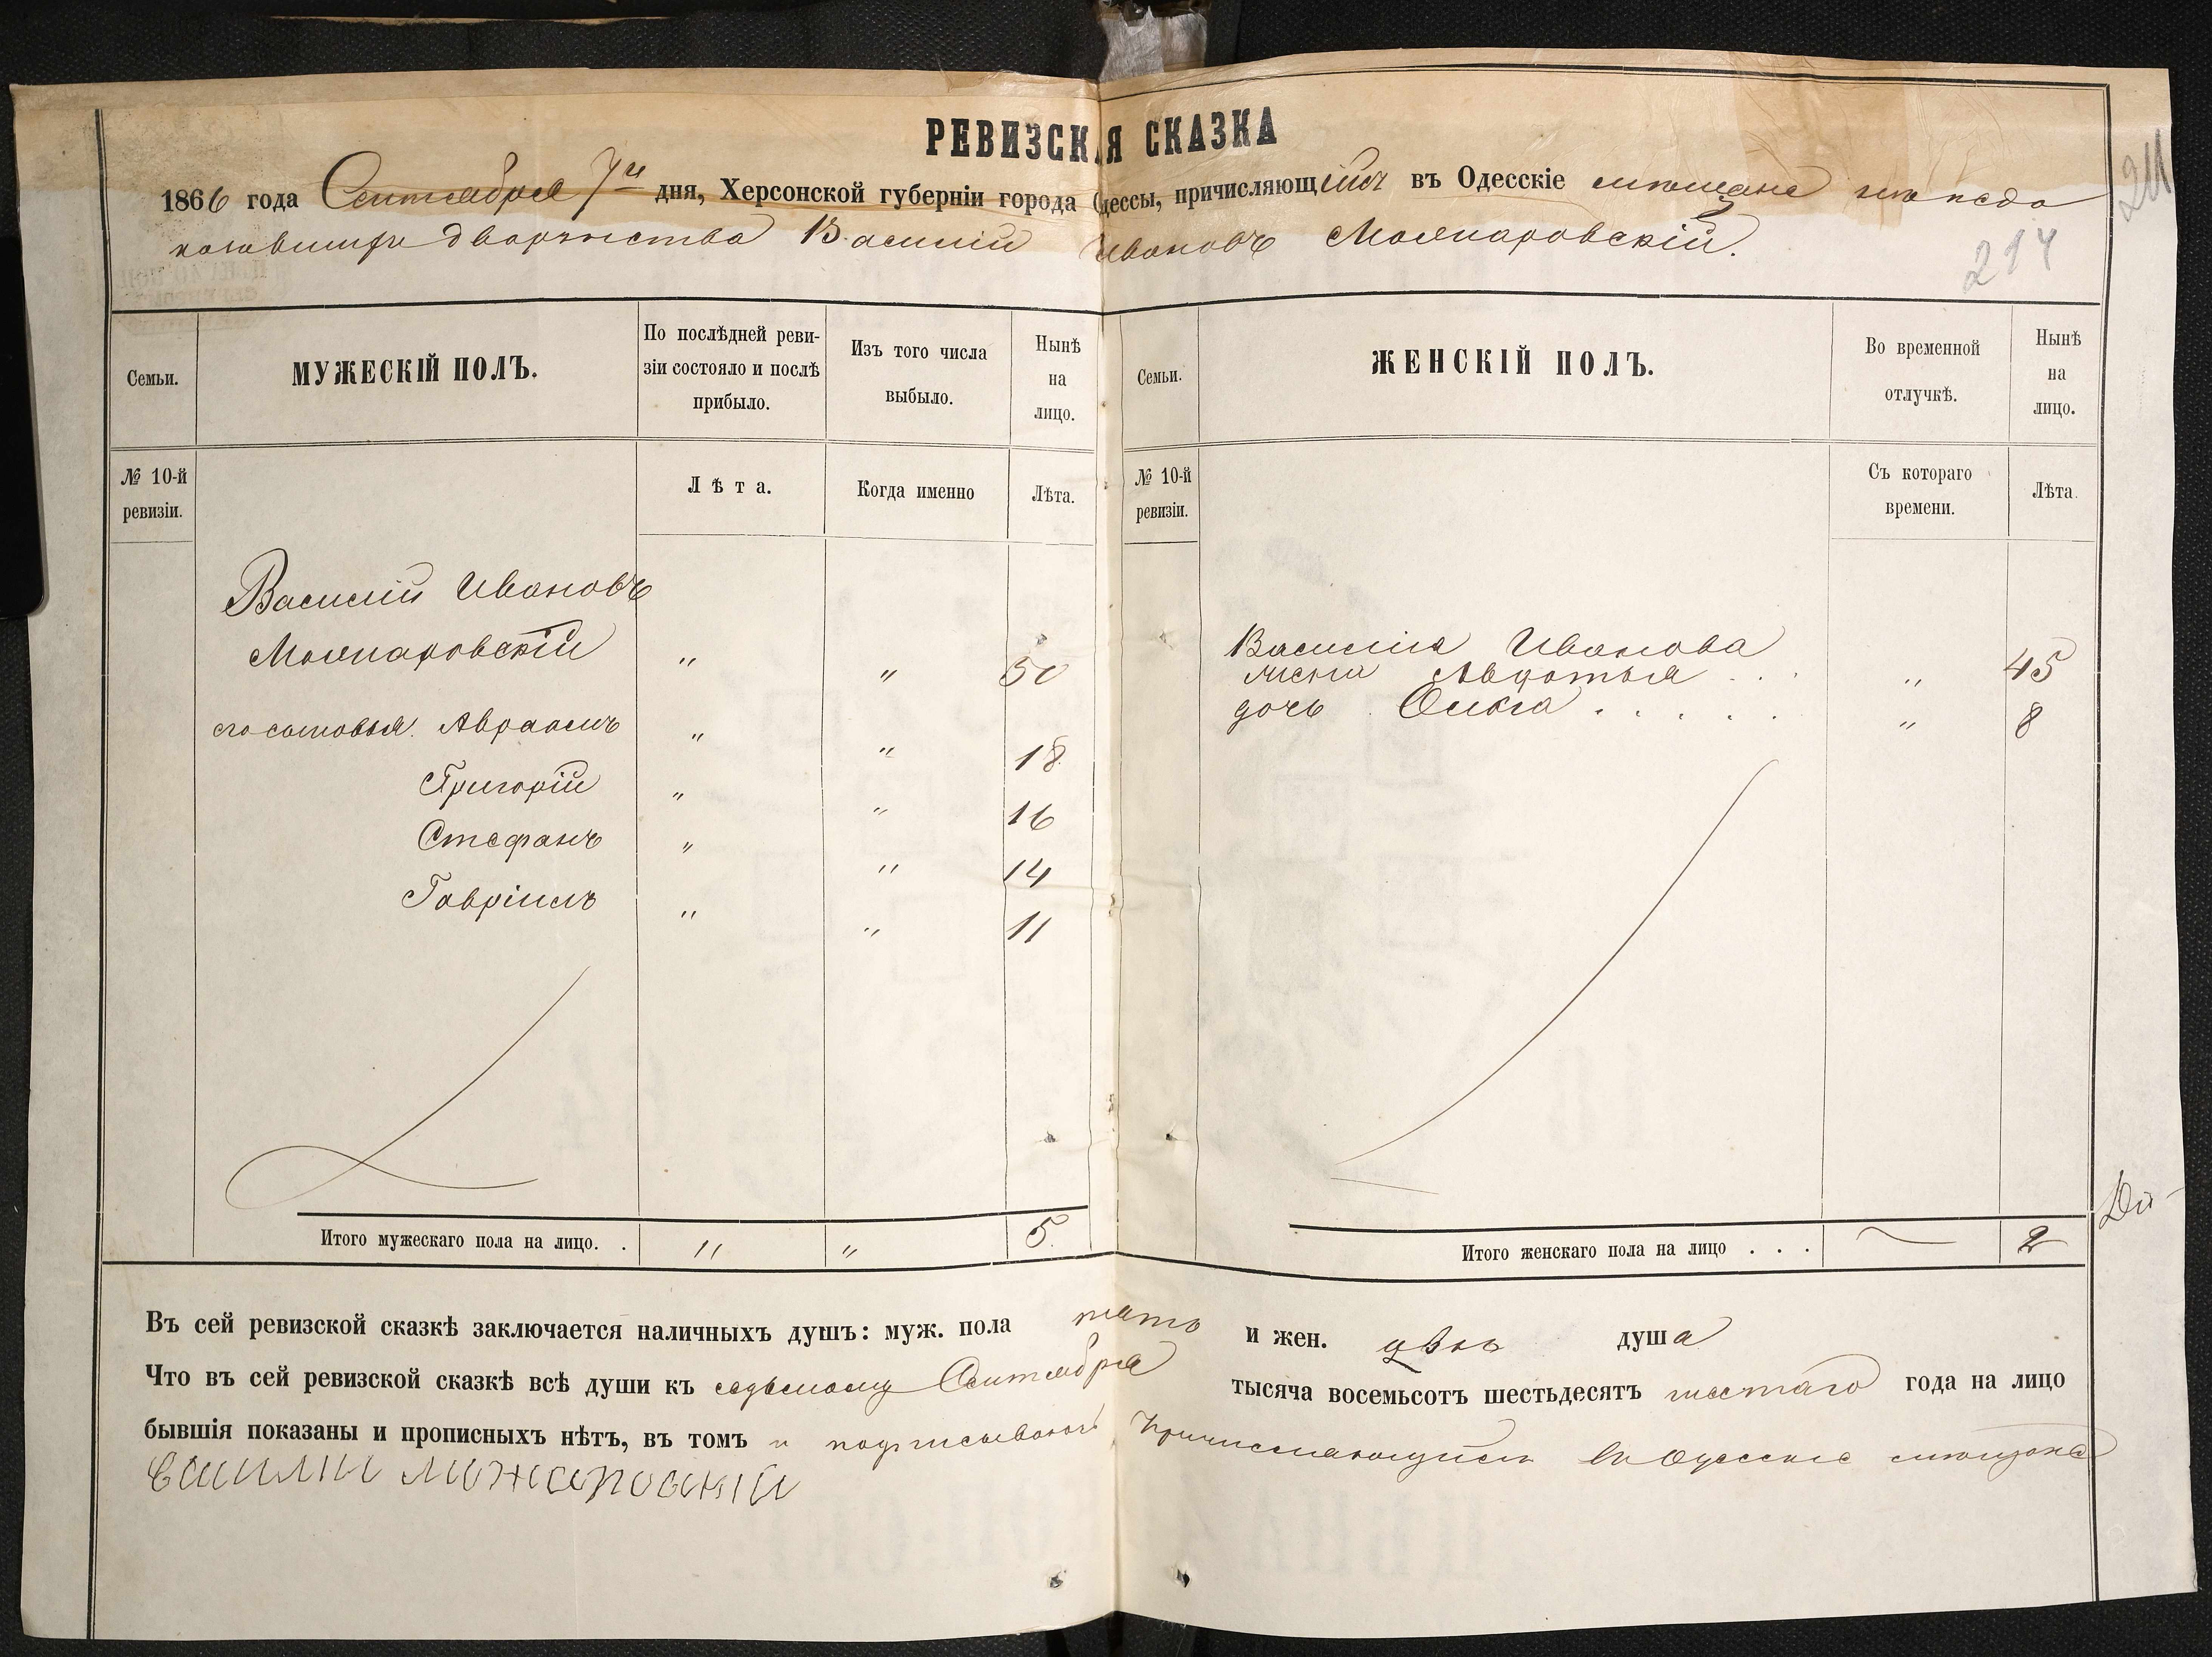 РЕВИЗСКАЯ СКАЗКА
1866 года Сентября 7го дня, Херсонской губерніи города Одессы, причисляющійся въ Одесскіе мѣщане изъ недо
казавшихъ дворянства Василій Ивановъ Можаровскій.
211
214
Семьи.
МУЖЕСКІЙ ПОЛЪ.
По послѣдней реви-
зіи состояло и послѣ
прибыло.
Изъ того числа
выбыло.
Нынѣ
на
лицо.
Семьи.
ЖЕНСКІЙ ПОЛЪ.
Во временной
отлучкѣ.
Нынѣ
на
лицо.
№ 10-й
ревизіи.
Лѣта.
Когда именно
Лѣта.
№ 10-й
ревизіи.
Съ котораго
времени.
Лѣта.
Василій Ивановъ
Можаровскій " " 50
его сыновья. Авраамъ " " 18
Григорій " " 16
Стефанъ " " 14
Гавріилъ " " 11
Василія Иванова
жена Авдотья . . . " 45
дочь Ольга . . . . . " 8
Итого мужескаго пола на лицо. . " " 5
Итого женскаго пола на лицо . . . 2
Въ сей ревизской сказкѣ заключается наличныхъ душъ: муж. пола пять и жен. двѣ душа
Что въ сей ревизской сказкѣ всѣ души къ седьмому Сентября тысяча восемьсотъ шестьдесятъ шестаго года на лицо
бывшія показаны и прописныхъ нѣтъ, въ томъ и подписываюсь Причисляющійся въ Одесскіе мѣщане
василий можаровский